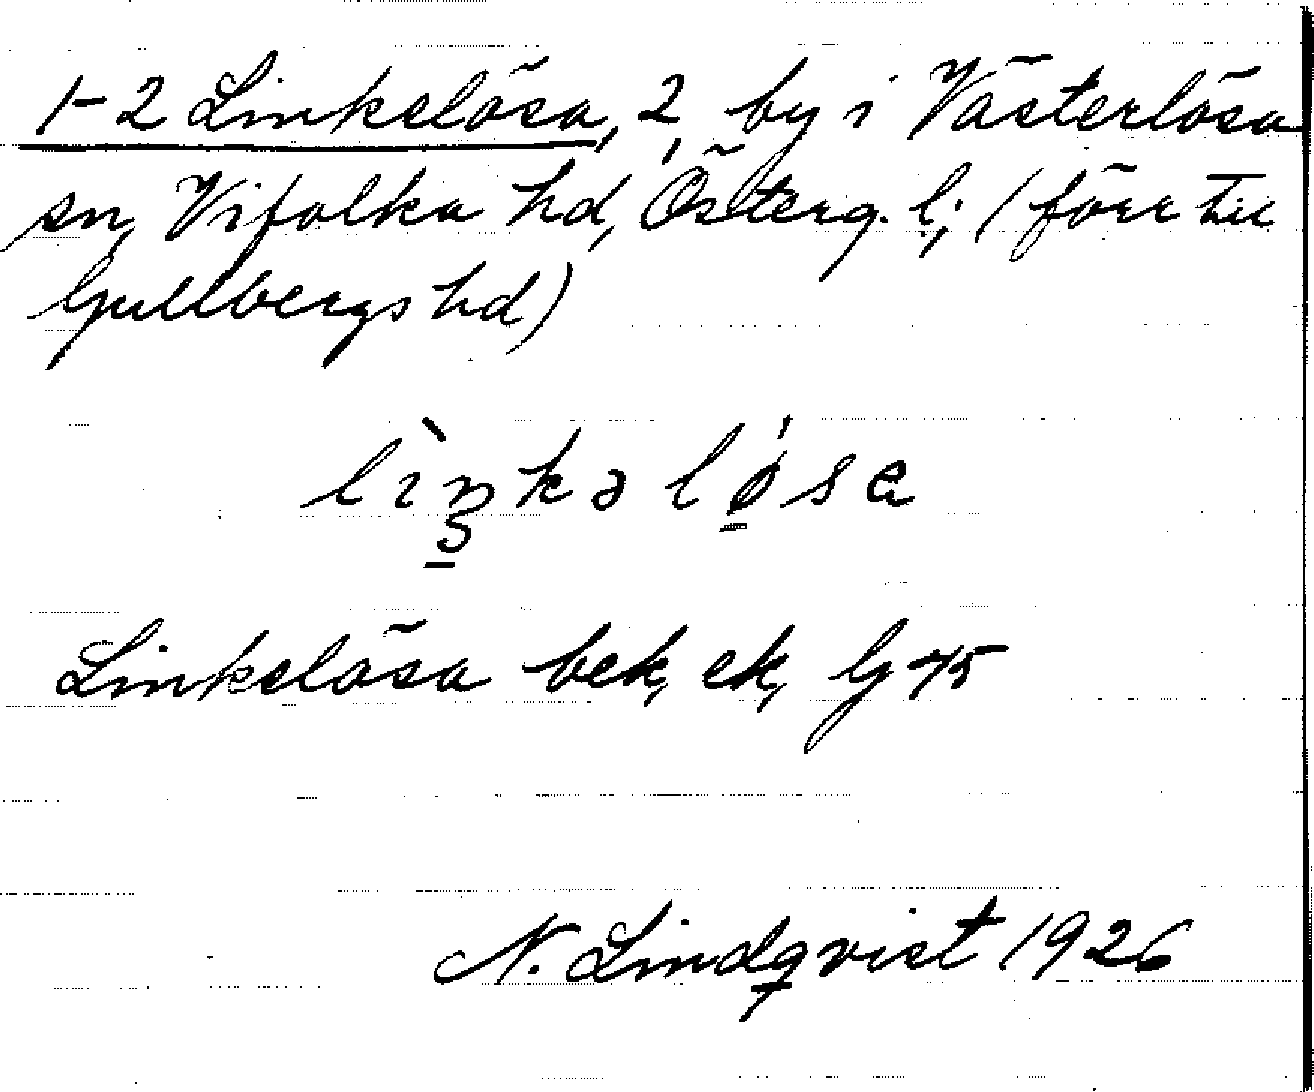 1-2 Linkelösa, 2, by i Västerlösa
sn, Vifolka hd, Österg. l; (förr till
Gullbergs hd)
lìŋkəlǿsa
Linkelösa bek, ek, Gj 45
N. Lindqvist 1926